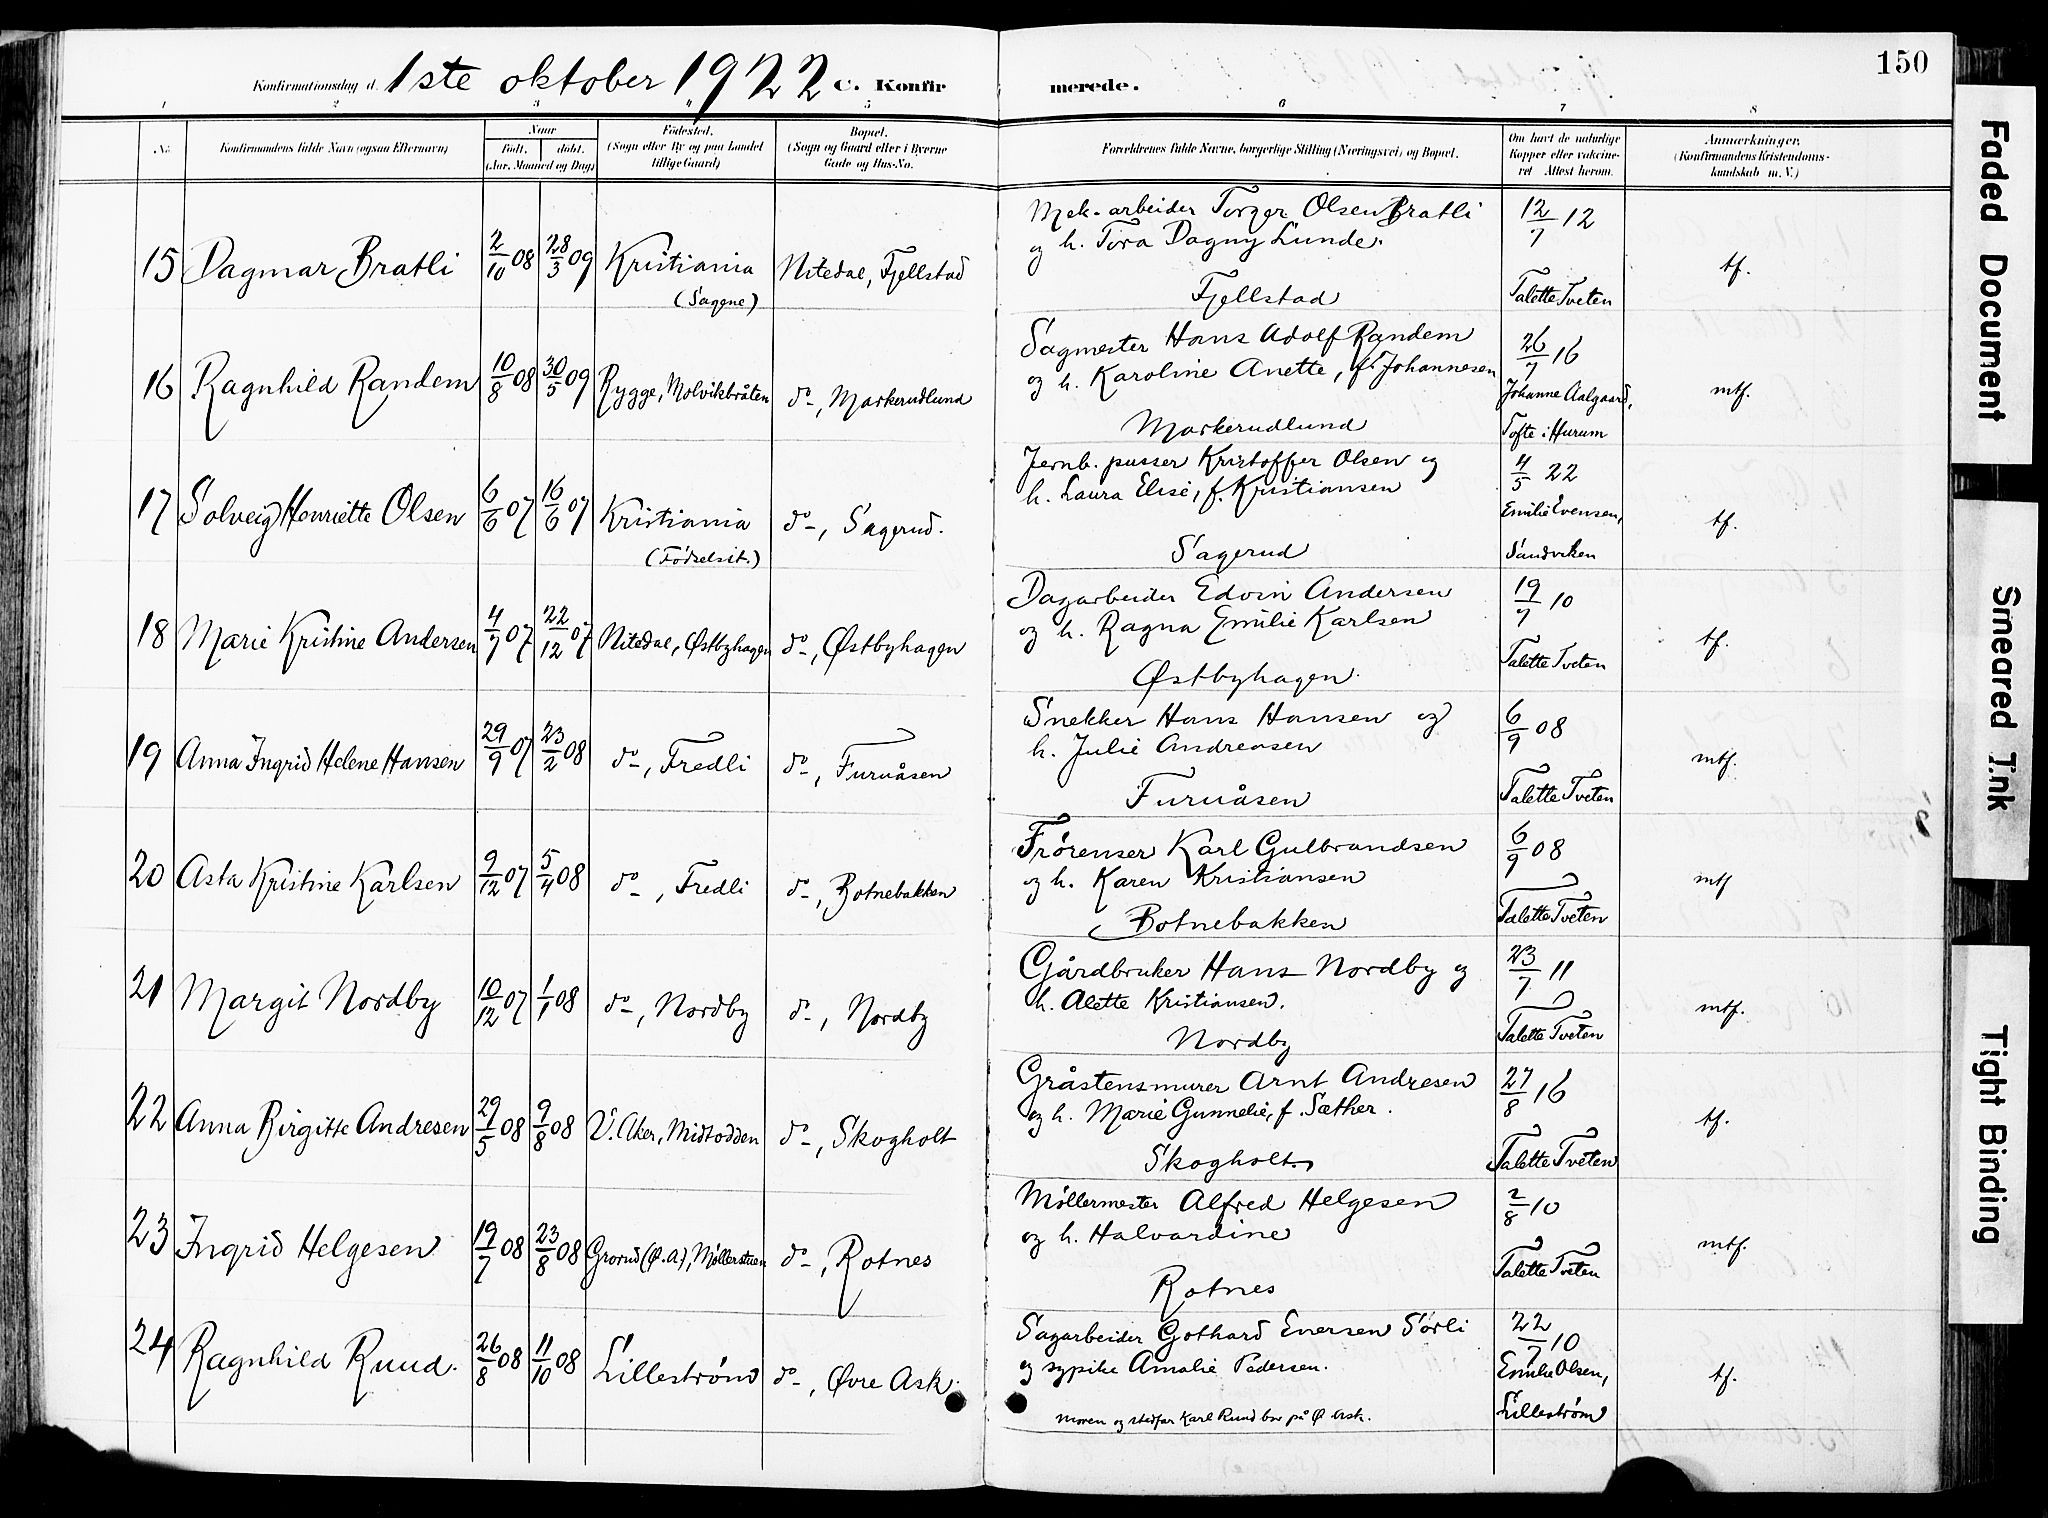 150
Konfirmationsdag d. 1ste oktober 1922 C. Konfirmerede.
1 2 3 4 5 6 7 8
No. Konfirmandens fulde Navn (ogsaa Efternavn) Naar født. døbt. (Aar, Maaned og Dag) Fødested. (Sogn eller By og paa Landet tillige Gaard) Bopæl. (Sogn og Gaard eller i Byerne Gade og Hus-No. Forældrenes fulde Navne, borgerlige Stilling (Næringsvei) og Bopæl. Om havt de naturlige Kopper eller vakcineret Attest herom. Anmerkninger. (Konfirmandens Kristendomskundskab m. V.)
15 Dagmar Bratli 2/10 08 28/3 09 Kristiania (Sagene) Nitedal, Fjellstad
Mek. arbeider Torger Olsen Bratli
og h. Tora Dagny Lunde.
Fjellstad
12/7 12
Talette Tveten
tf.
16 Ragnhild Randem 10/8 08 30/5 09 Rygge, Molvikbråten do-, Markerudlund
Sagmester Hans Adolf Randem
og h. Karoline Anette, f. Johannesen
Markerudlund
26/7 16
Johanne Aalgaard,
Tofte i Hurum
mtf.
17 Solveig Henriette Olsen 6/6 07 16/6 07 Kristiania (Fødselsst.) do-, Sagerud.
Jernb. pusser Kristoffer Olsen og
h. Laura Elise, f. Kristiansen
Sagerud
4/5 22
Emilie Evensen,
Sandviken
tf.
18 Marie Kristine Andersen 4/7 07 22/12 07 Nitedal, Østbyhagen do-, Østbyhagen
Dagarbeider Edvin Andersen
og h. Ragna Emilie Karlsen
Østbyhagen.
19/7 10
Talette Tveten
tf.
19 Anna Ingrid Helene Hansen 29/9 07 23/2 08 do-, Fredli do-, Furuåsen
Snekker Hans Hansen og
h. Julie Andreasen
Furuåsen
6/9 08
Talette Tveten
mtf.
20 Asta Kristine Karlsen 9/12 07 5/4 08 do-, Fredli do-, Botnebakken
Frørenser Karl Gulbrandsen
og h. Karen Kristiansen
Botnebakken
6/9 08
Talette Tveten
mtf
21 Margit Nordby 10/12 07 1/1 08 do-, Nordby do-, Nordby
Gårdbruker Hans Nordby og
h. Alette Kristiansen.
Nordby
23/7 11
Talette Tveten
mtf.
22 Anna Birgitte Andresen 29/5 08 9/8 08 V. Aker, Midtodden do-, Skogholt
Gråstensmurer Arnt Andresen
og h. Marie Gunnelie, f. Sæther.
Skogholt.
27/8 16
Talette Tveten
tf.
23 Ingrid Helgesen 19/7 08 23/8 08 Grorud (Ø. A.), Møllerstuen do-, Rotnes
Møllermester Alfred Helgesen
og h. Halvardine
Rotnes
2/8 10
Talette Tveten
mtf.
24 Ragnhild Ruud. 26/8 08 11/10 08 Lillestrøm do-, Øvre Ask.
Sagarbeider Gothard Enersen Sørli
og sypike Amalie Pedersen.
Moren og stedfar Karl Ruud bor på Ø Ask.
22/7 10
Emilie Olsen,
Lillestrøm
tf.
Faded Document
Smeared Ink
Tight Binding